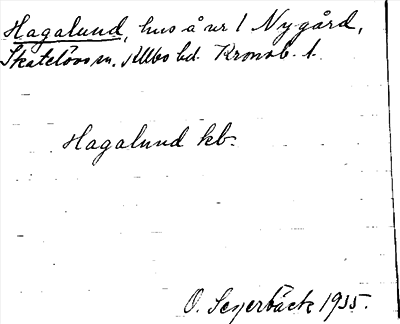 Hagalund, hus å nr 1 Nygård,
Skatelövs sn. Allbo hd. Kronob. l.
Hagalund kb.
O. Segerbäck 1935.